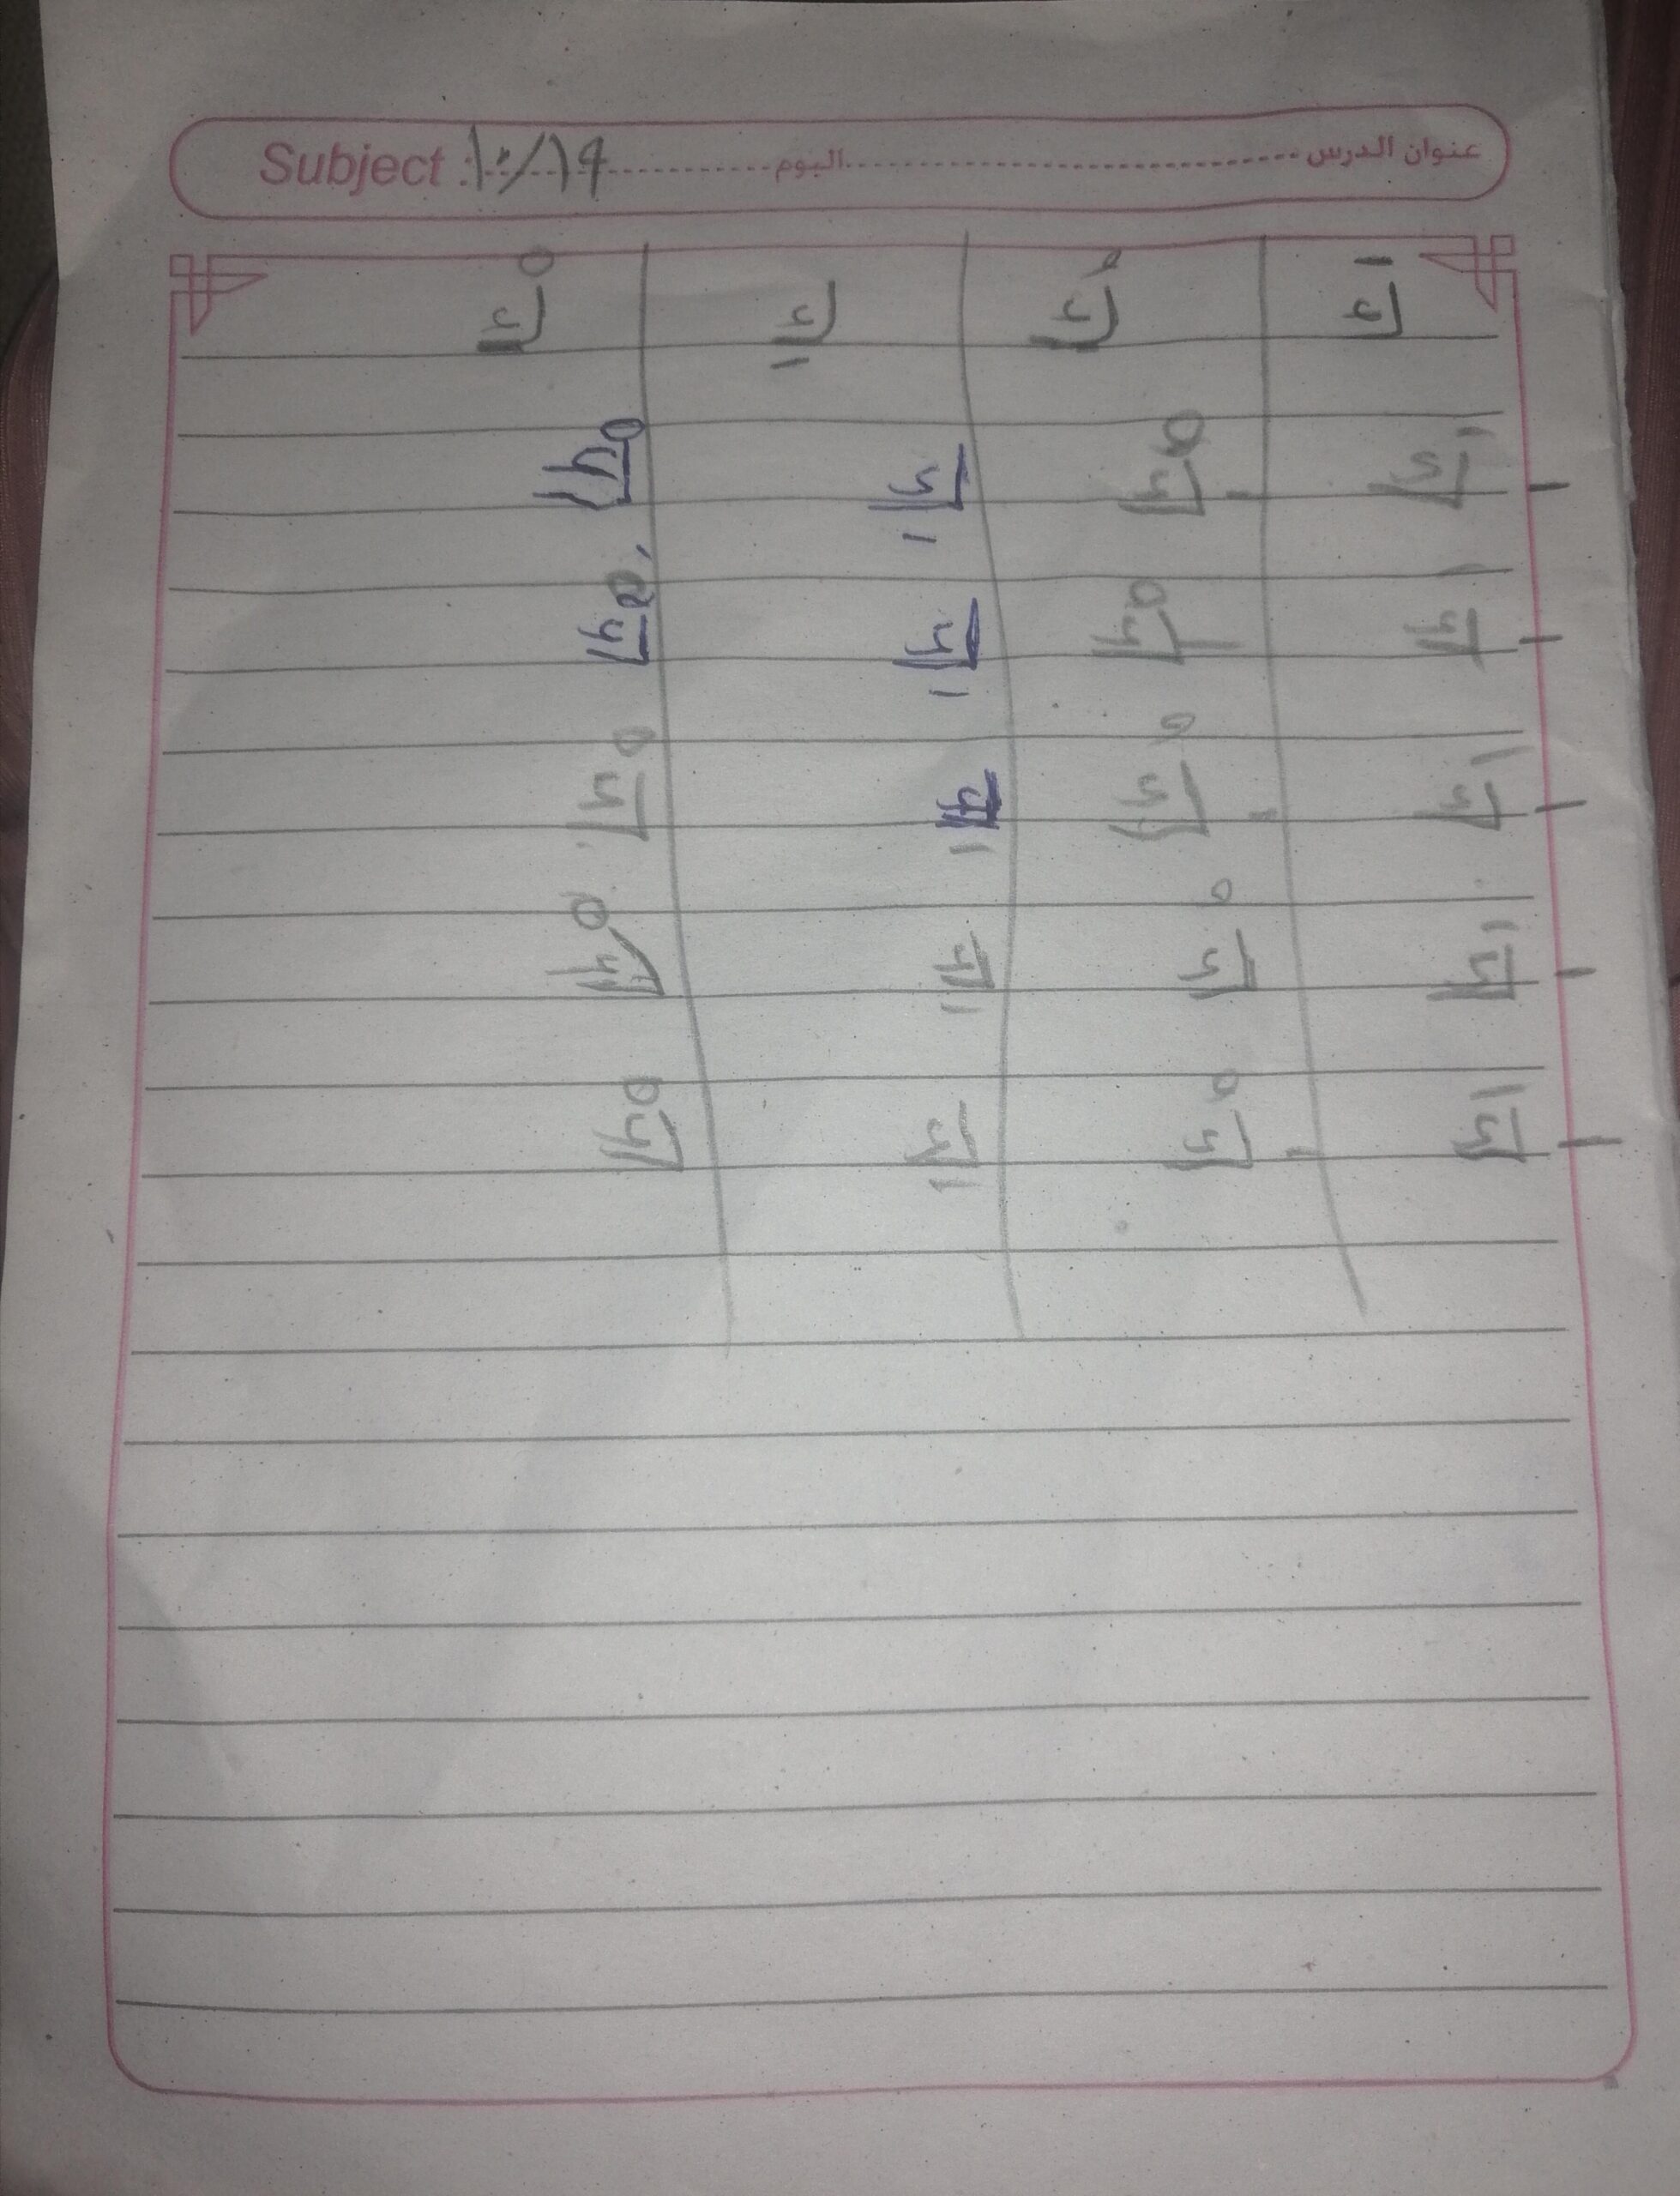 عنوان الدرس اليوم Subject : ١٠/١٩
كَ كُ كِ كْ
- كَ - كُ كِ كْ
- كَ - كُ كِ كْ
- كَ - كُ كِ كْ
- كَ كُ كِ كْ
- كَ - كُ كِ كْ